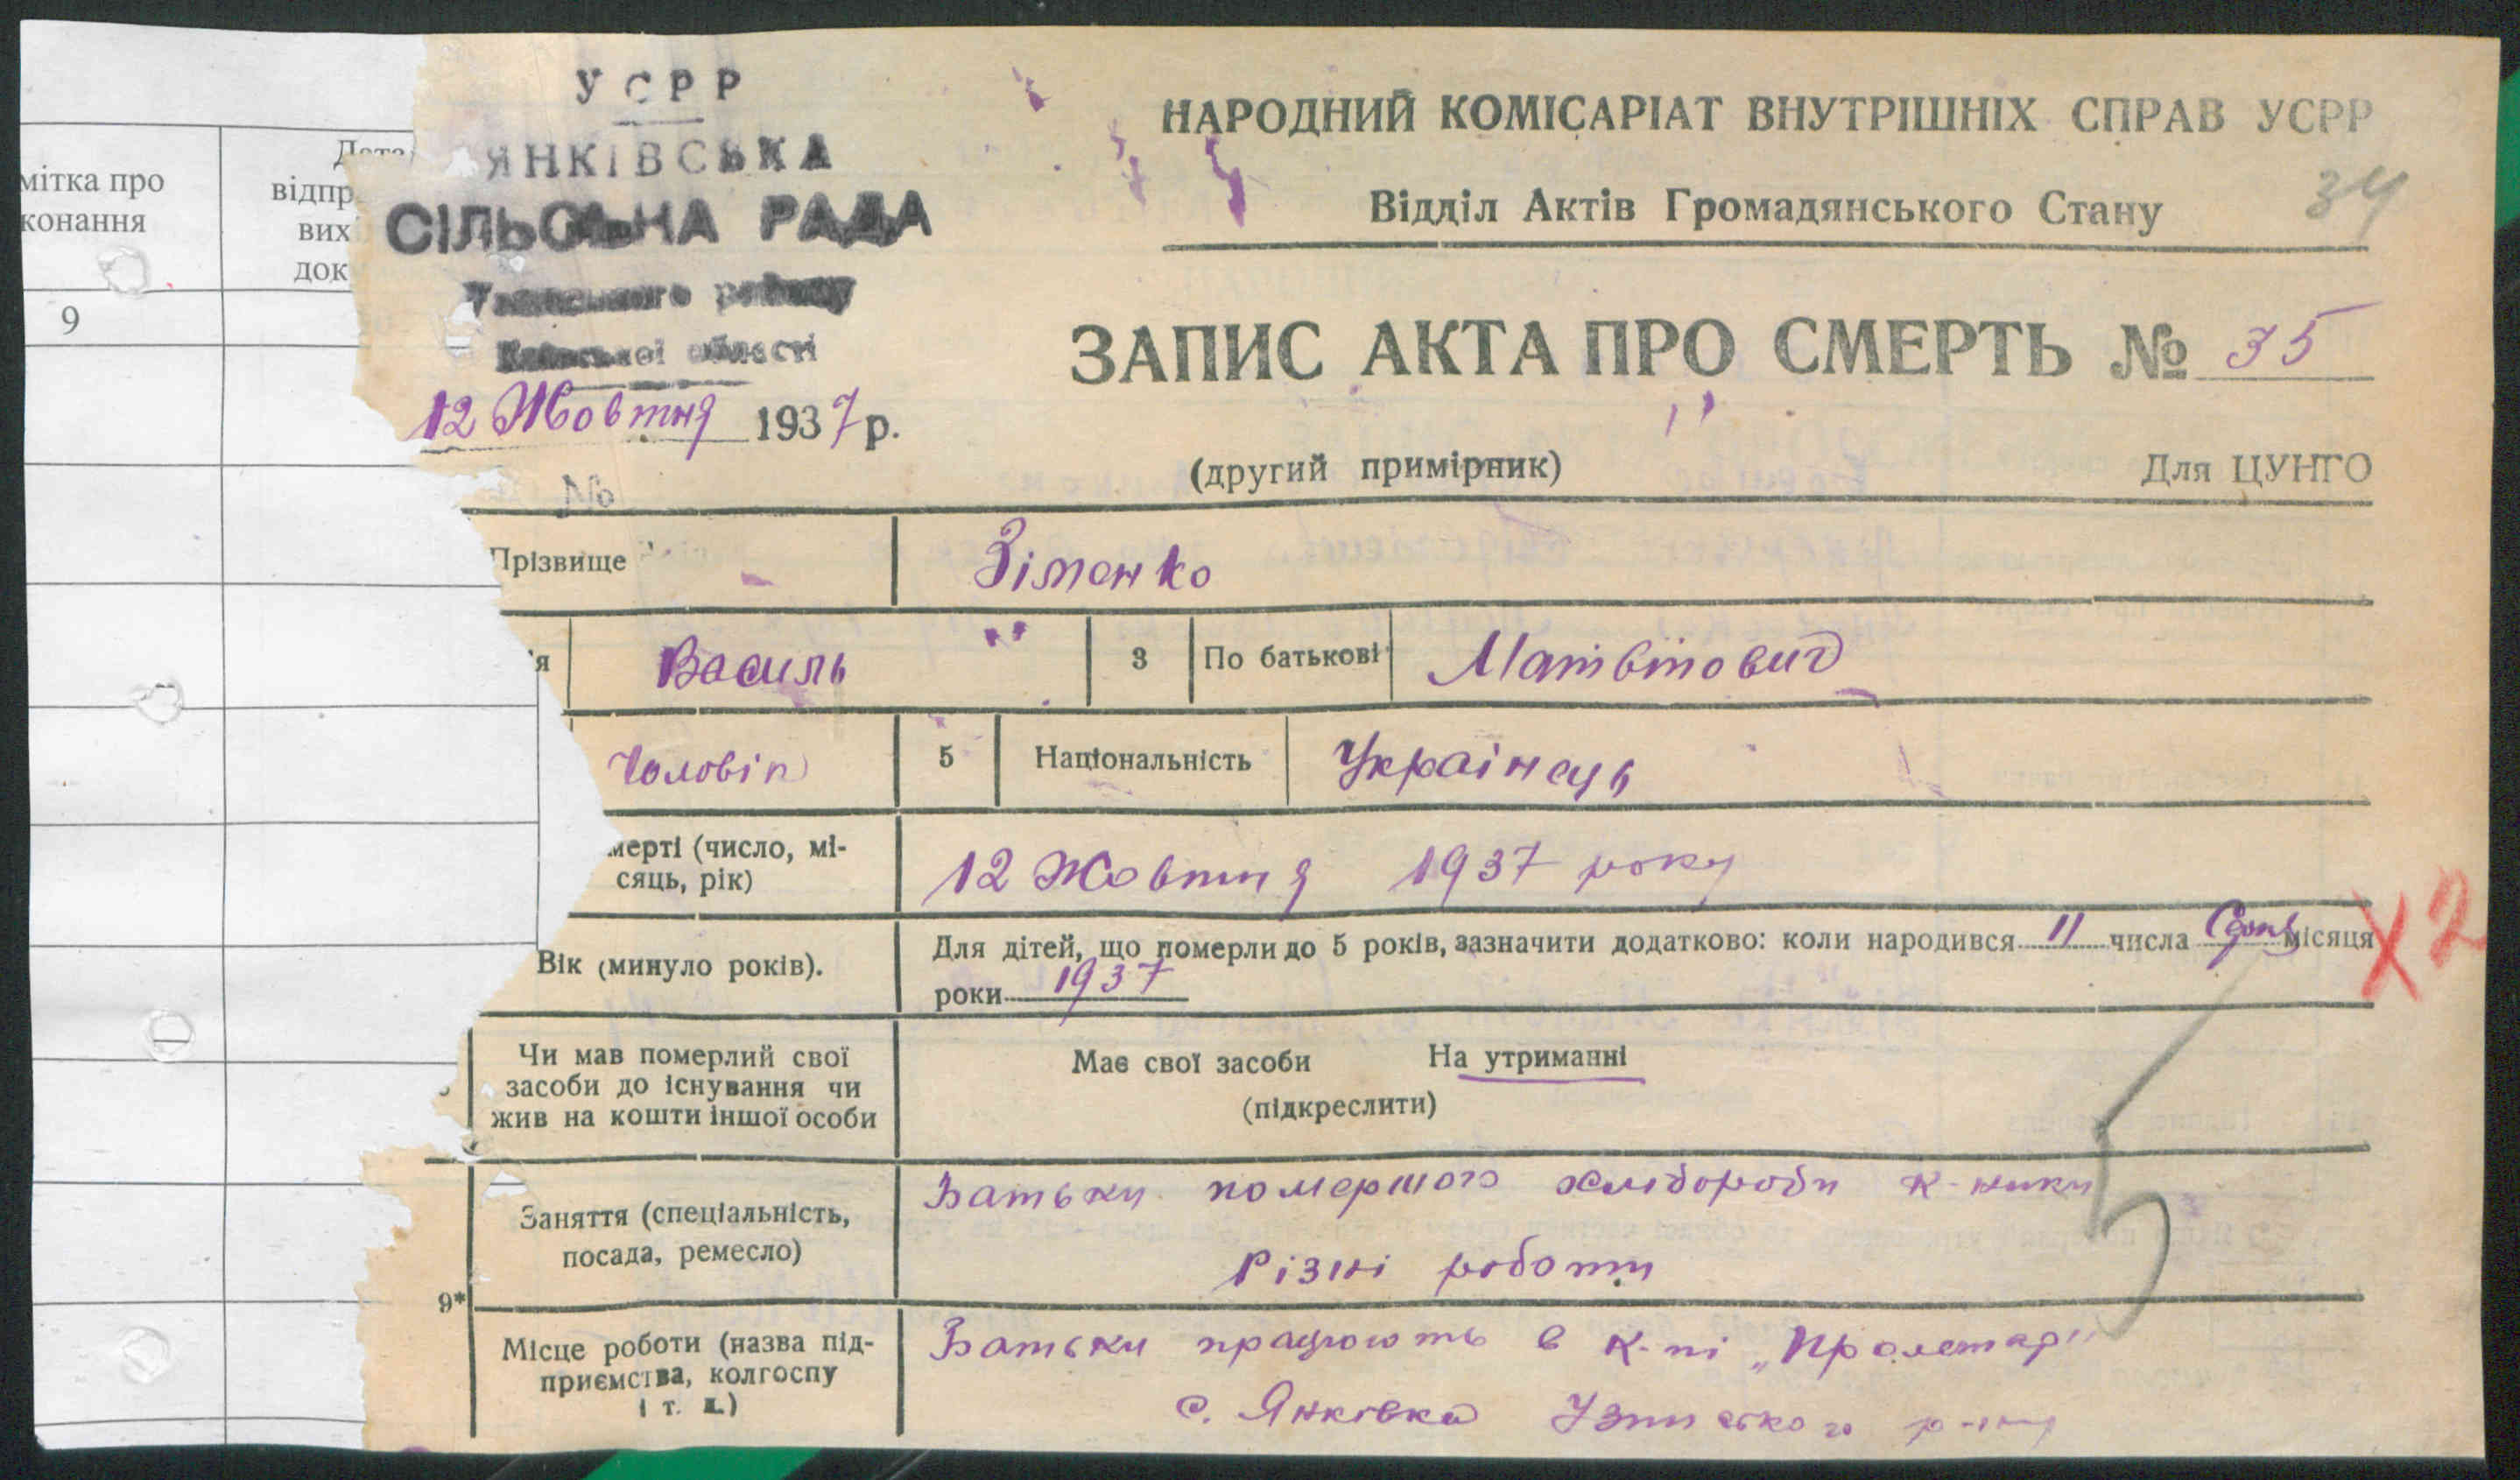 мітка про
конання
відпр
вих
док
9
УСРР
ЯНКІВСЬКА
СІЛЬСЬКА РАДА
району
Київської області
12 Жовтня 1937 р.
№
НАРОДНИЙ КОМІСАРІАТ ВНУТРІШНІХ СПРАВ УСРР
Відділ Актів Громадянського Стану
34
ЗАПИС АКТА ПРО СМЕРТЬ № 35
(другий примірник) Для ЦУНГО
Прізвище Зіменко
я Василь 3 По батькові Матвійович
Чоловіч 5 Національність Українець
мерті (число, мі-
сяць, рік)
12 Жовтня 1937 року
Вік (минуло років).
Для дітей, що померли до 5 років, зазначити додатково: коли народився 11 числа місяця
роки 1937
X2
Чи мав померлий свої
засоби до існування чи
жив на кошти іншої особи
Має свої засоби На утриманні
(підкреслити)
Заняття (спеціальність,
посада, ремесло)
Батьки помершого хлібороби к-ники
Різні роботи
9*
Місце роботи (назва під-
приємства, колгоспу
і т. д.)
Батьки працюють в к-пі „Пролетар"
с. Янківка Узинського р-ну